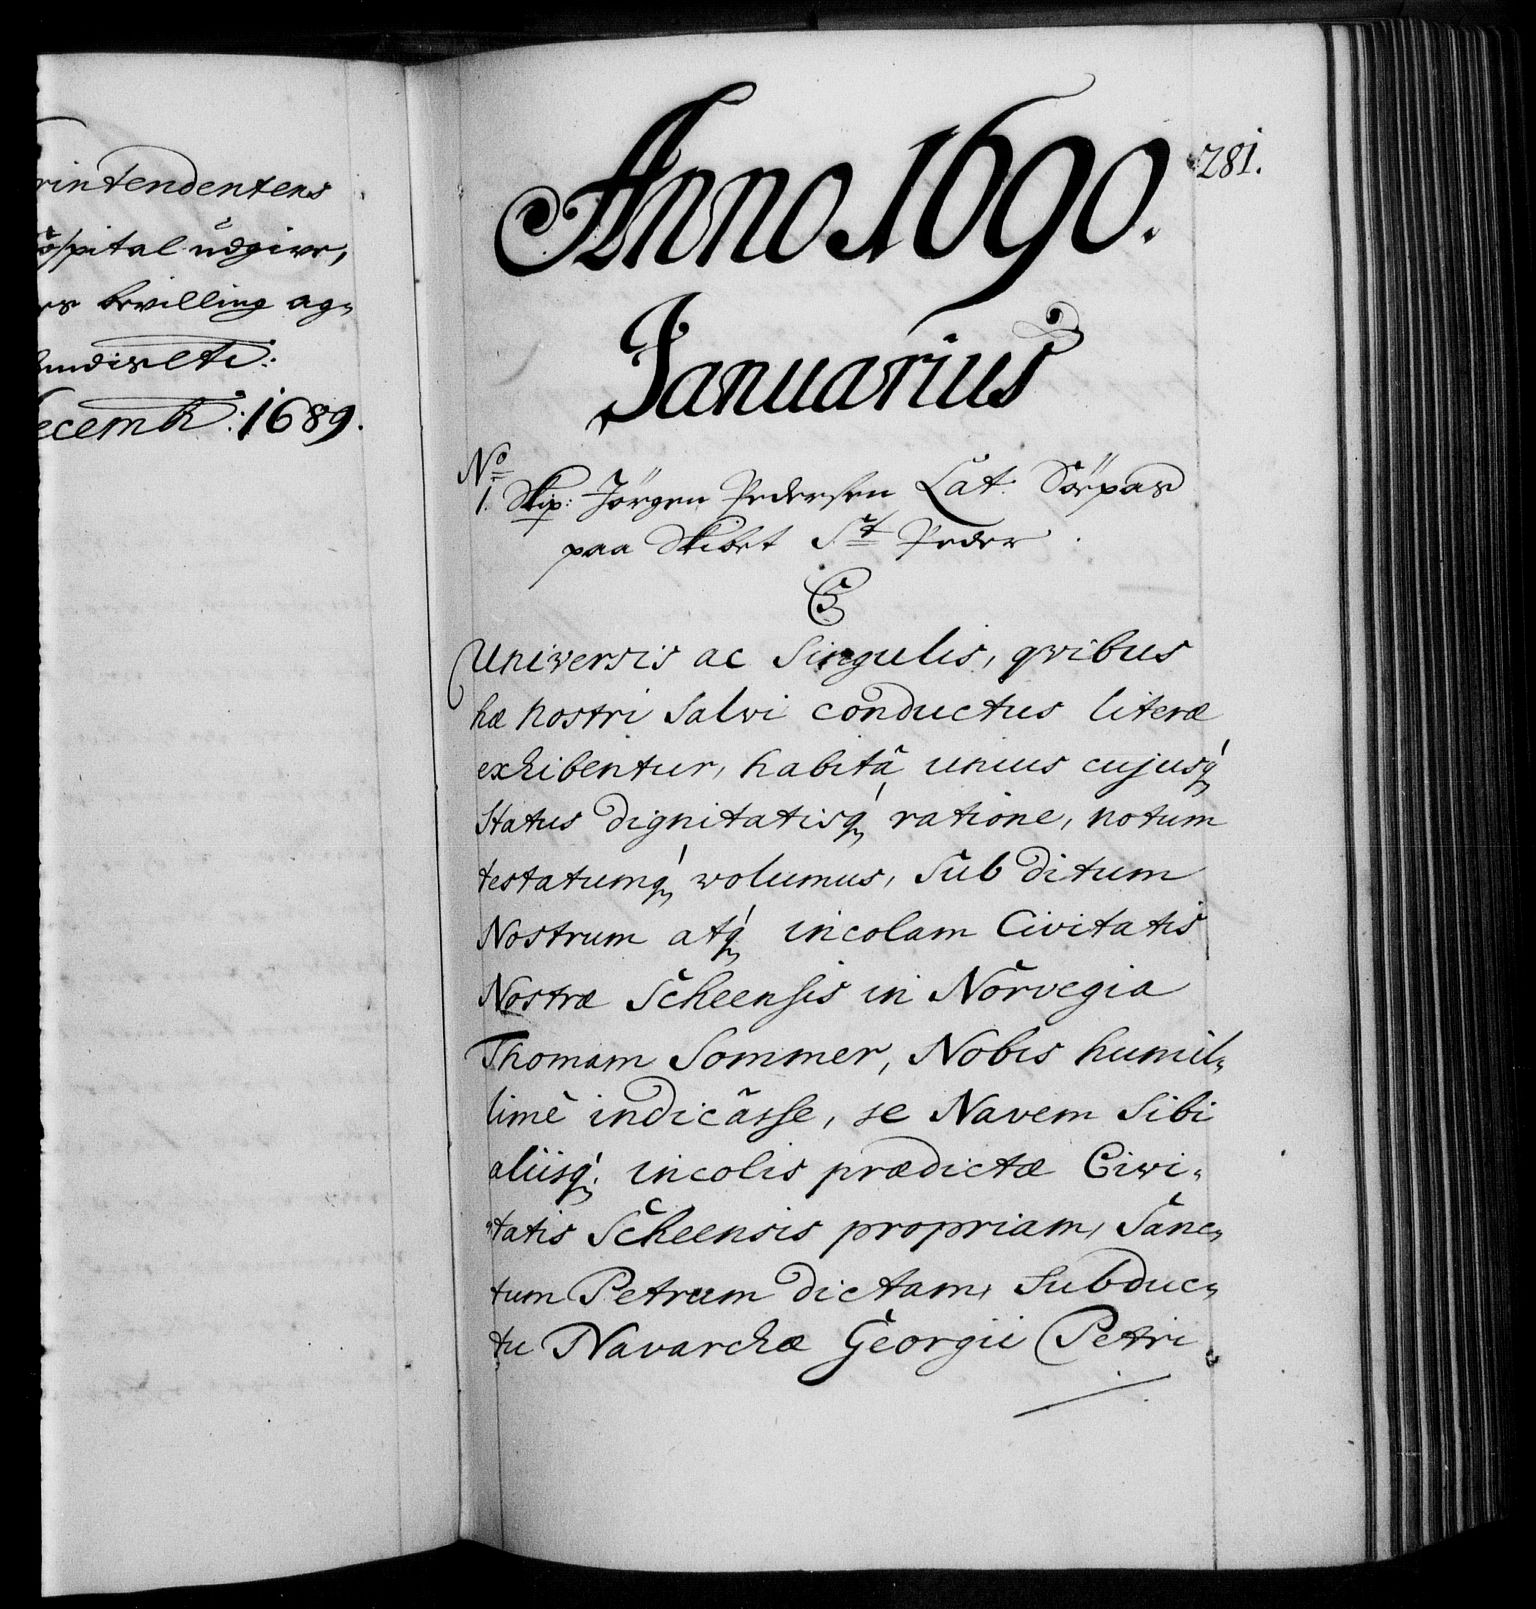 rintendentens
ospital udgive,
es bevilling ag=
hmdis etc:
ecembr: 1689.
Anno 1690.
281.
Januarius
No
1. Skip: Jörgen Pedersen Lat: Söepas
paa Skibet St Peder
C5
Universis ac Singulis, qvibus
hæ nostri Salvi conductus literæ
exhibentur, habitâ unius cujusq́
Status dignitatisq́ ratione, notum
testatumq́ volumus, Subditum
Nostrum atq́ incolam Civitatis
Nostræ Scheensis in Norvegia
Thomam Sommer, Nobis humil=
limè indicasse, se Navem Sibi
aliisq́ incolis prædictæ Civi=
tatis Scheensis propriam, Sanc=
tum Petrum dictam, Subduc=
tu Navarchæ Georgii Petri